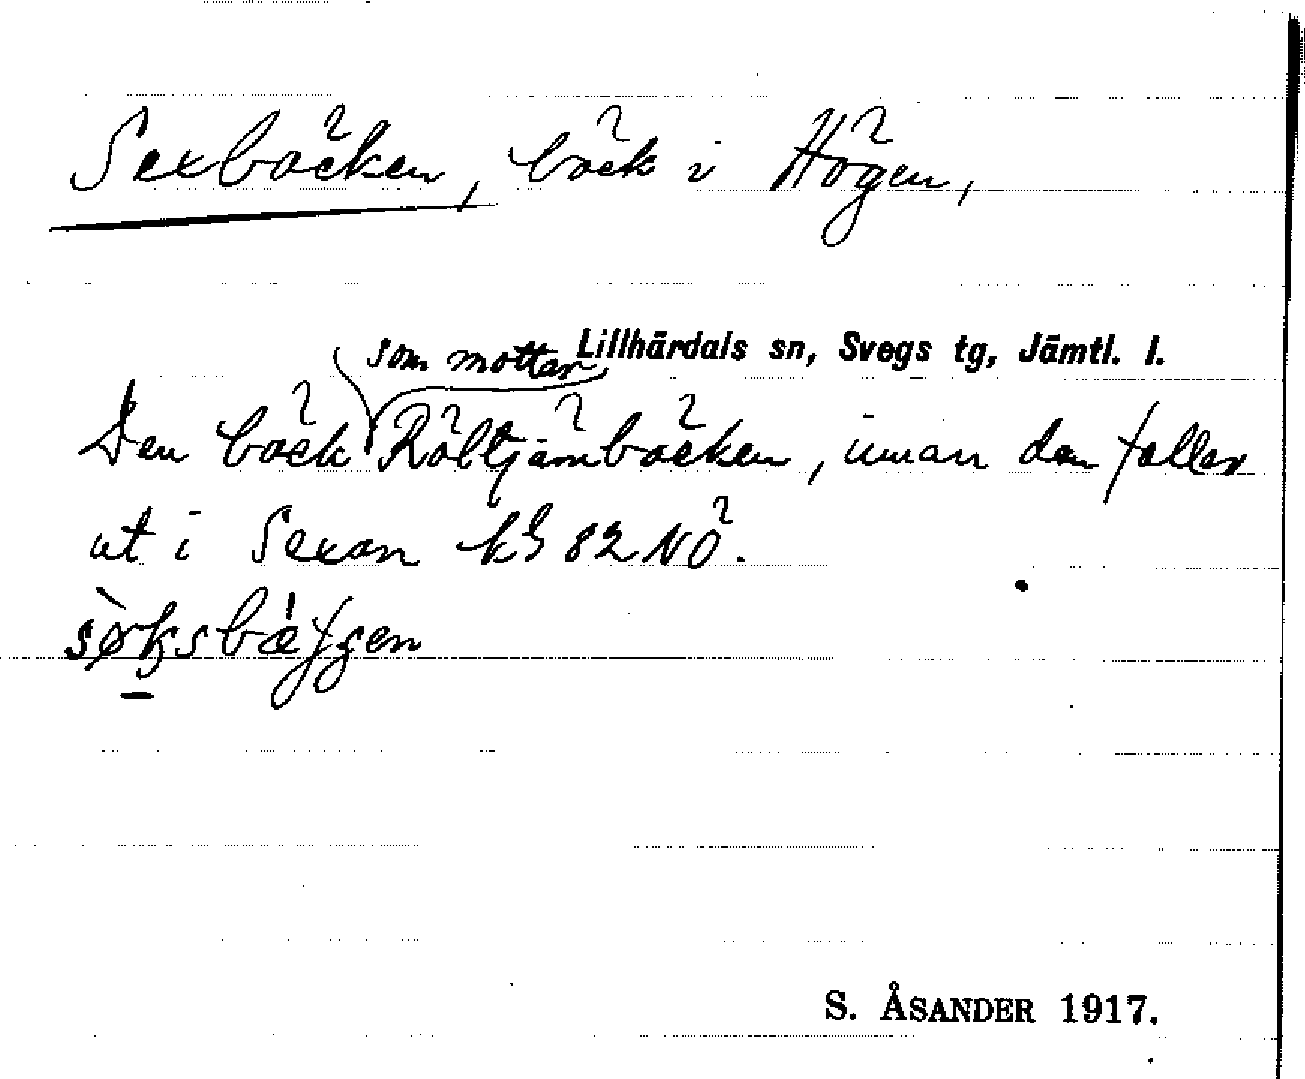 Sexbäcken, bäck i Högen,
Lillhärdals sn, Svegs tg, Jämtl. l.
som mottar
Den bäck Röltjärnbäcken, innan den faller
ut i Sexan kbl 82 NÖ.
S. ÅSANDER 1917.